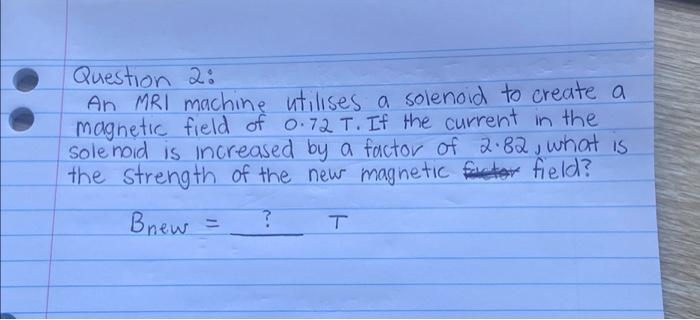 Question 2:
An MRI machine utilises a solenoid to create a
magnetic field of 0.72 T. If the current in the
solenoid is increased by a factor of 2.82, what is
the strength of the new magnetic factor field?
Bnew = ? T